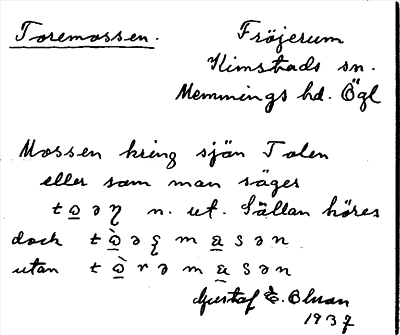 Toremossen.
Fröjerum
Kimstads sn.
Memmings hd. Ögl
Mossen kring sjön Toln
eller som man säger
n. ut. Sällan höres
dock
utan
Gustaf E. Olson
1937